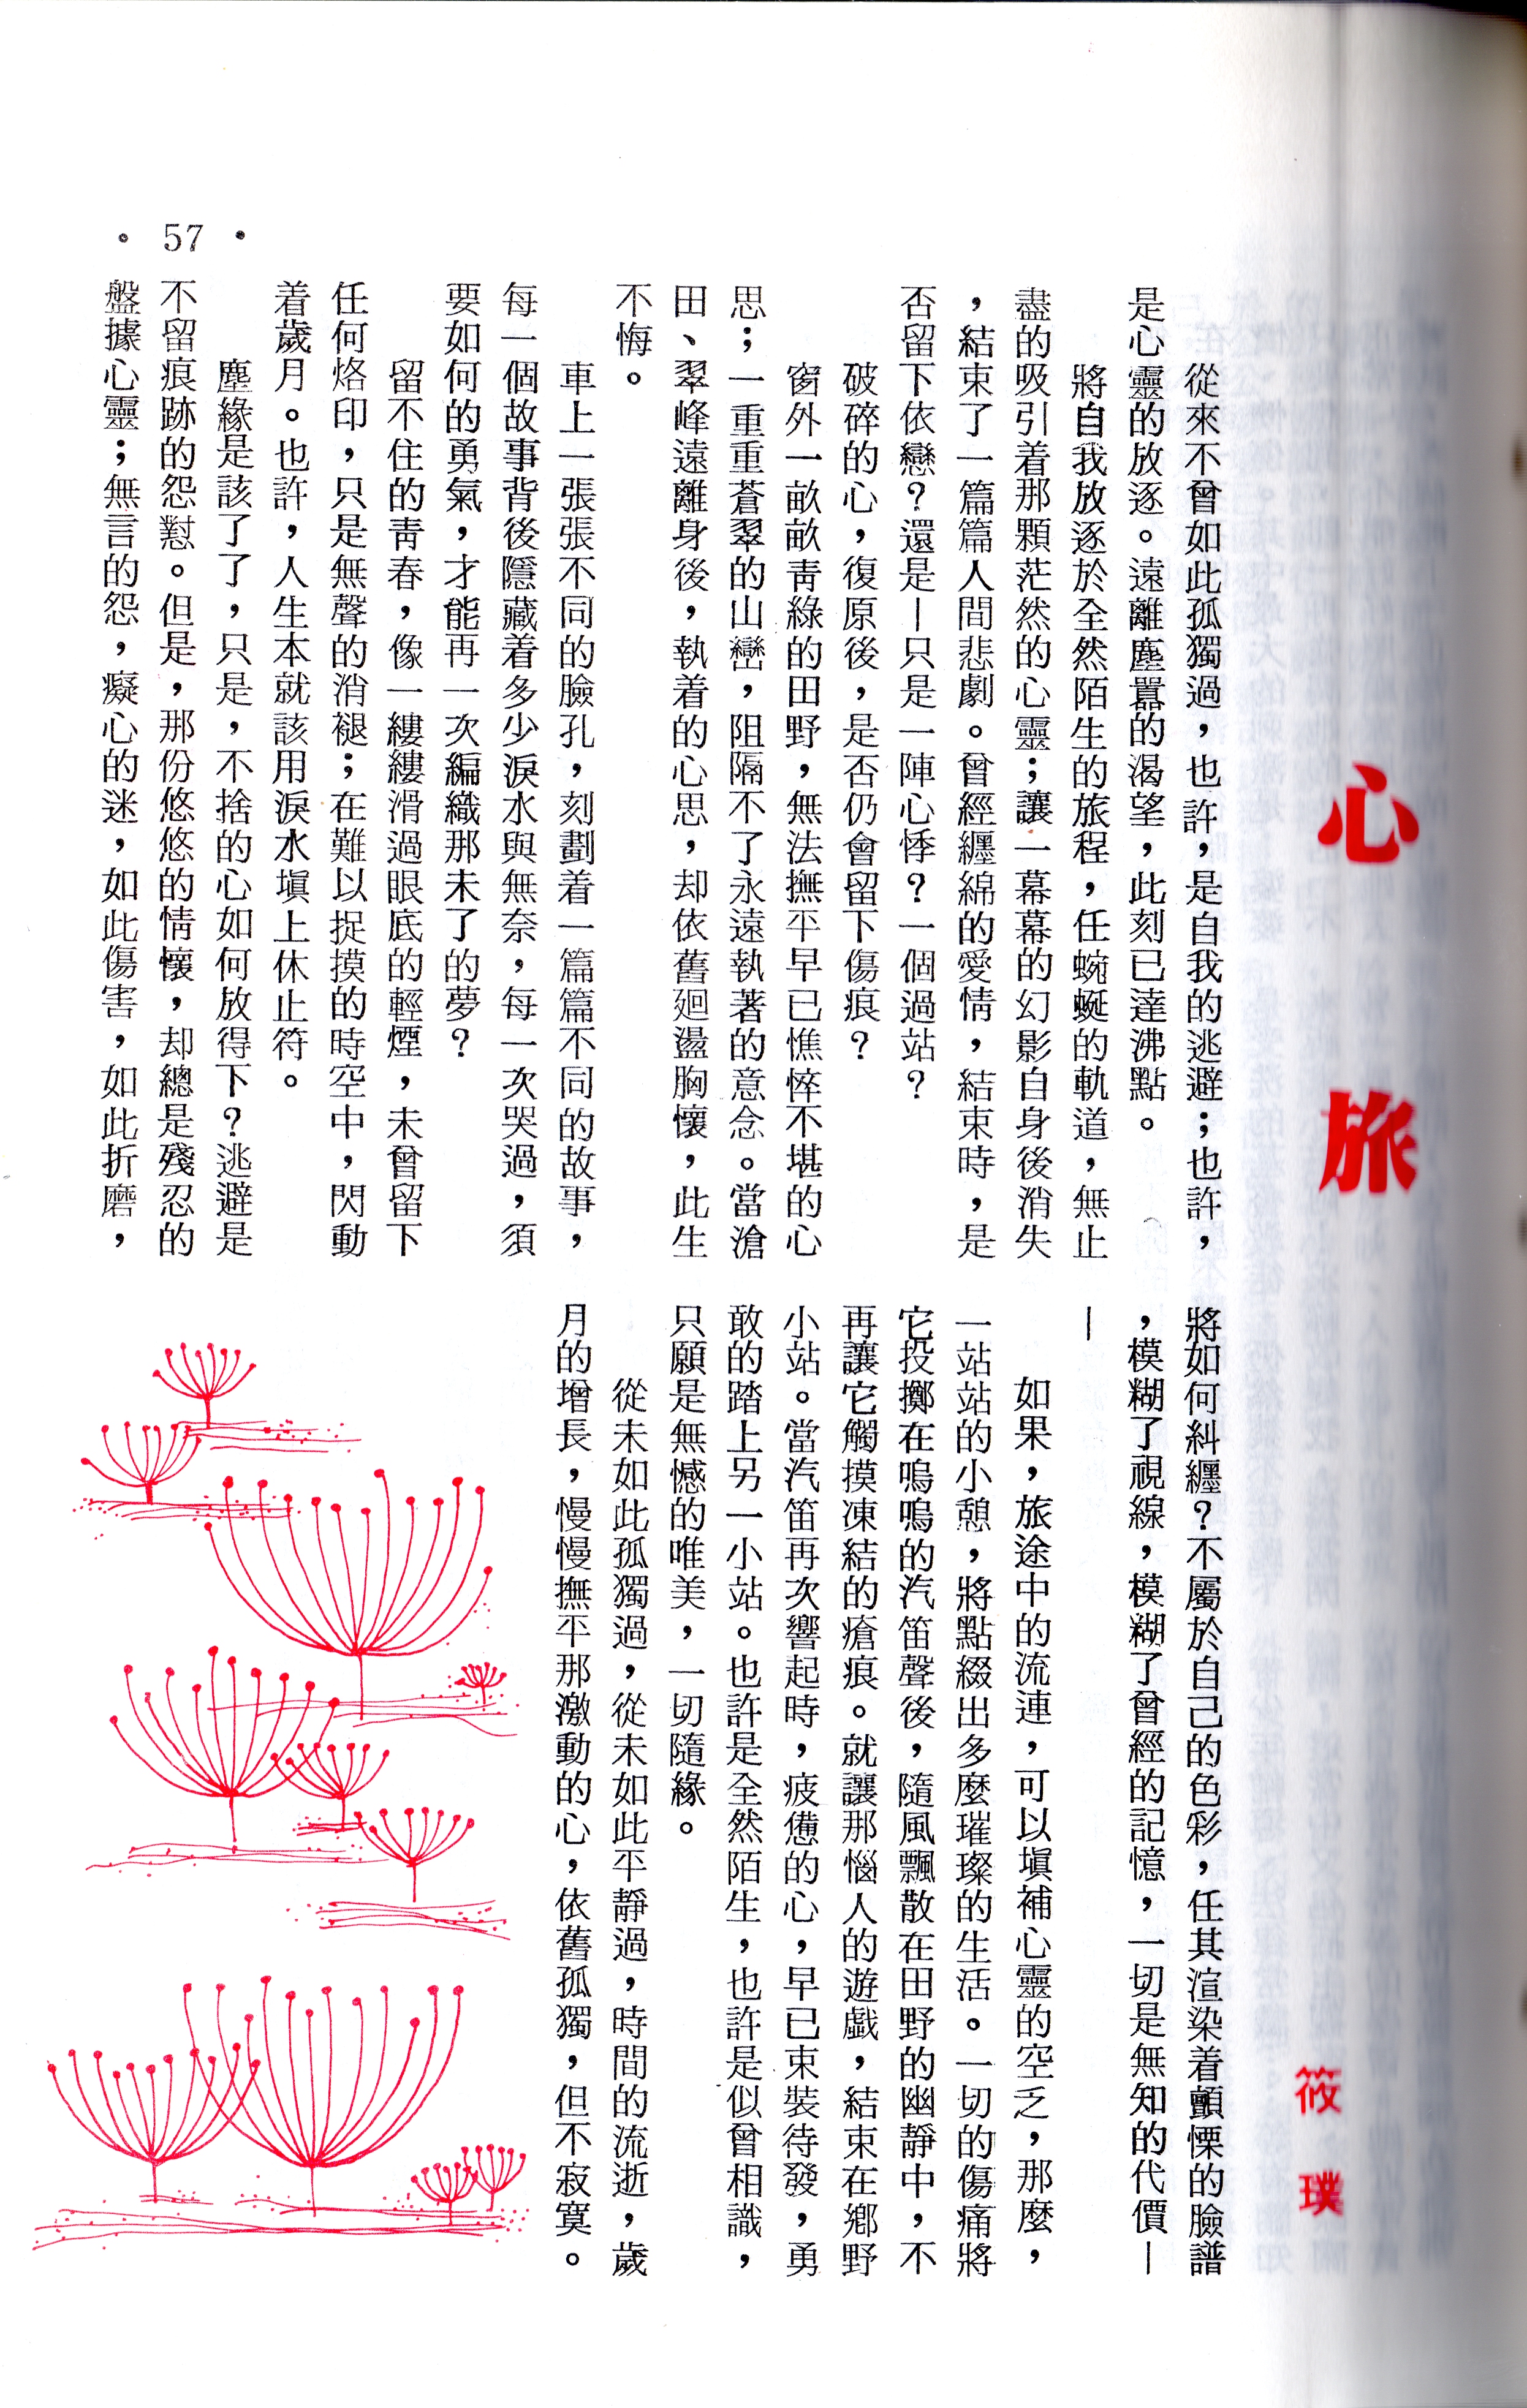 心旅
筱璞
從來不曾如此孤獨過，也許，是自我的逃避；也許，
是心靈的放逐。遠離塵囂的渴望，此刻已達沸點。
將自我放逐於全然陌生的旅程，任蜿蜒的軌道，無止
盡的吸引着那顆茫然的心靈；讓一幕幕的幻影自身後消失
，結束了一篇篇人間悲劇。曾經纏綿的愛情，結束時，是
否留下依戀？還是—只是一陣心悸？一個過站？
破碎的心，復原後，是否仍會留下傷痕？
窗外一畝畝靑綠的田野，無法撫平早已憔悴不堪的心
思；一重重蒼翠的山巒，阻隔不了永遠執著的意念。當滄
田、翠峰遠離身後，執着的心思，却依舊廻盪胸懷，此生
不悔。
車上一張張不同的臉孔，刻劃着一篇篇不同的故事，
每一個故事背後隱藏着多少淚水與無奈，每一次哭過，須
要如何的勇氣，才能再一次編織那未了的夢？
留不住的靑春，像一縷縷滑過眼底的輕煙，未曾留下
任何烙印，只是無聲的消褪；在難以捉摸的時空中，閃動
着歲月。也許，人生本就該用淚水塡上休止符。
塵緣是該了了，只是，不捨的心如何放得下？逃避是
不留痕跡的怨懟。但是，那份悠悠的情懷，却總是殘忍的
盤據心靈；無言的怨，癡心的迷，如此傷害，如此折磨，
將如何糾纒？不屬於自己的色彩，任其渲染着顫慄的臉譜
，模糊了視線，模糊了曾經的記憶，一切是無知的代價—
—
如果，旅途中的流連，可以塡補心靈的空乏，那麼，
一站站的小憩，將點綴出多麼璀璨的生活。一切的傷痛將
它投擲在嗚嗚的汽笛聲後，隨風飄散在田野的幽靜中，不
再讓它觸摸凍結的瘡痕。就讓那惱人的遊戲，結束在鄉野
小站。當汽笛再次響起時，疲憊的心，早已束裝待發，勇
敢的踏上另一小站。也許是全然陌生，也許是似曾相識，
只願是無憾的唯美，一切隨緣。
從未如此孤獨過，從未如此平靜過，時間的流逝，歲
月的增長，慢慢撫平那激動的心，依舊孤獨，但不寂寞。
• 57 •